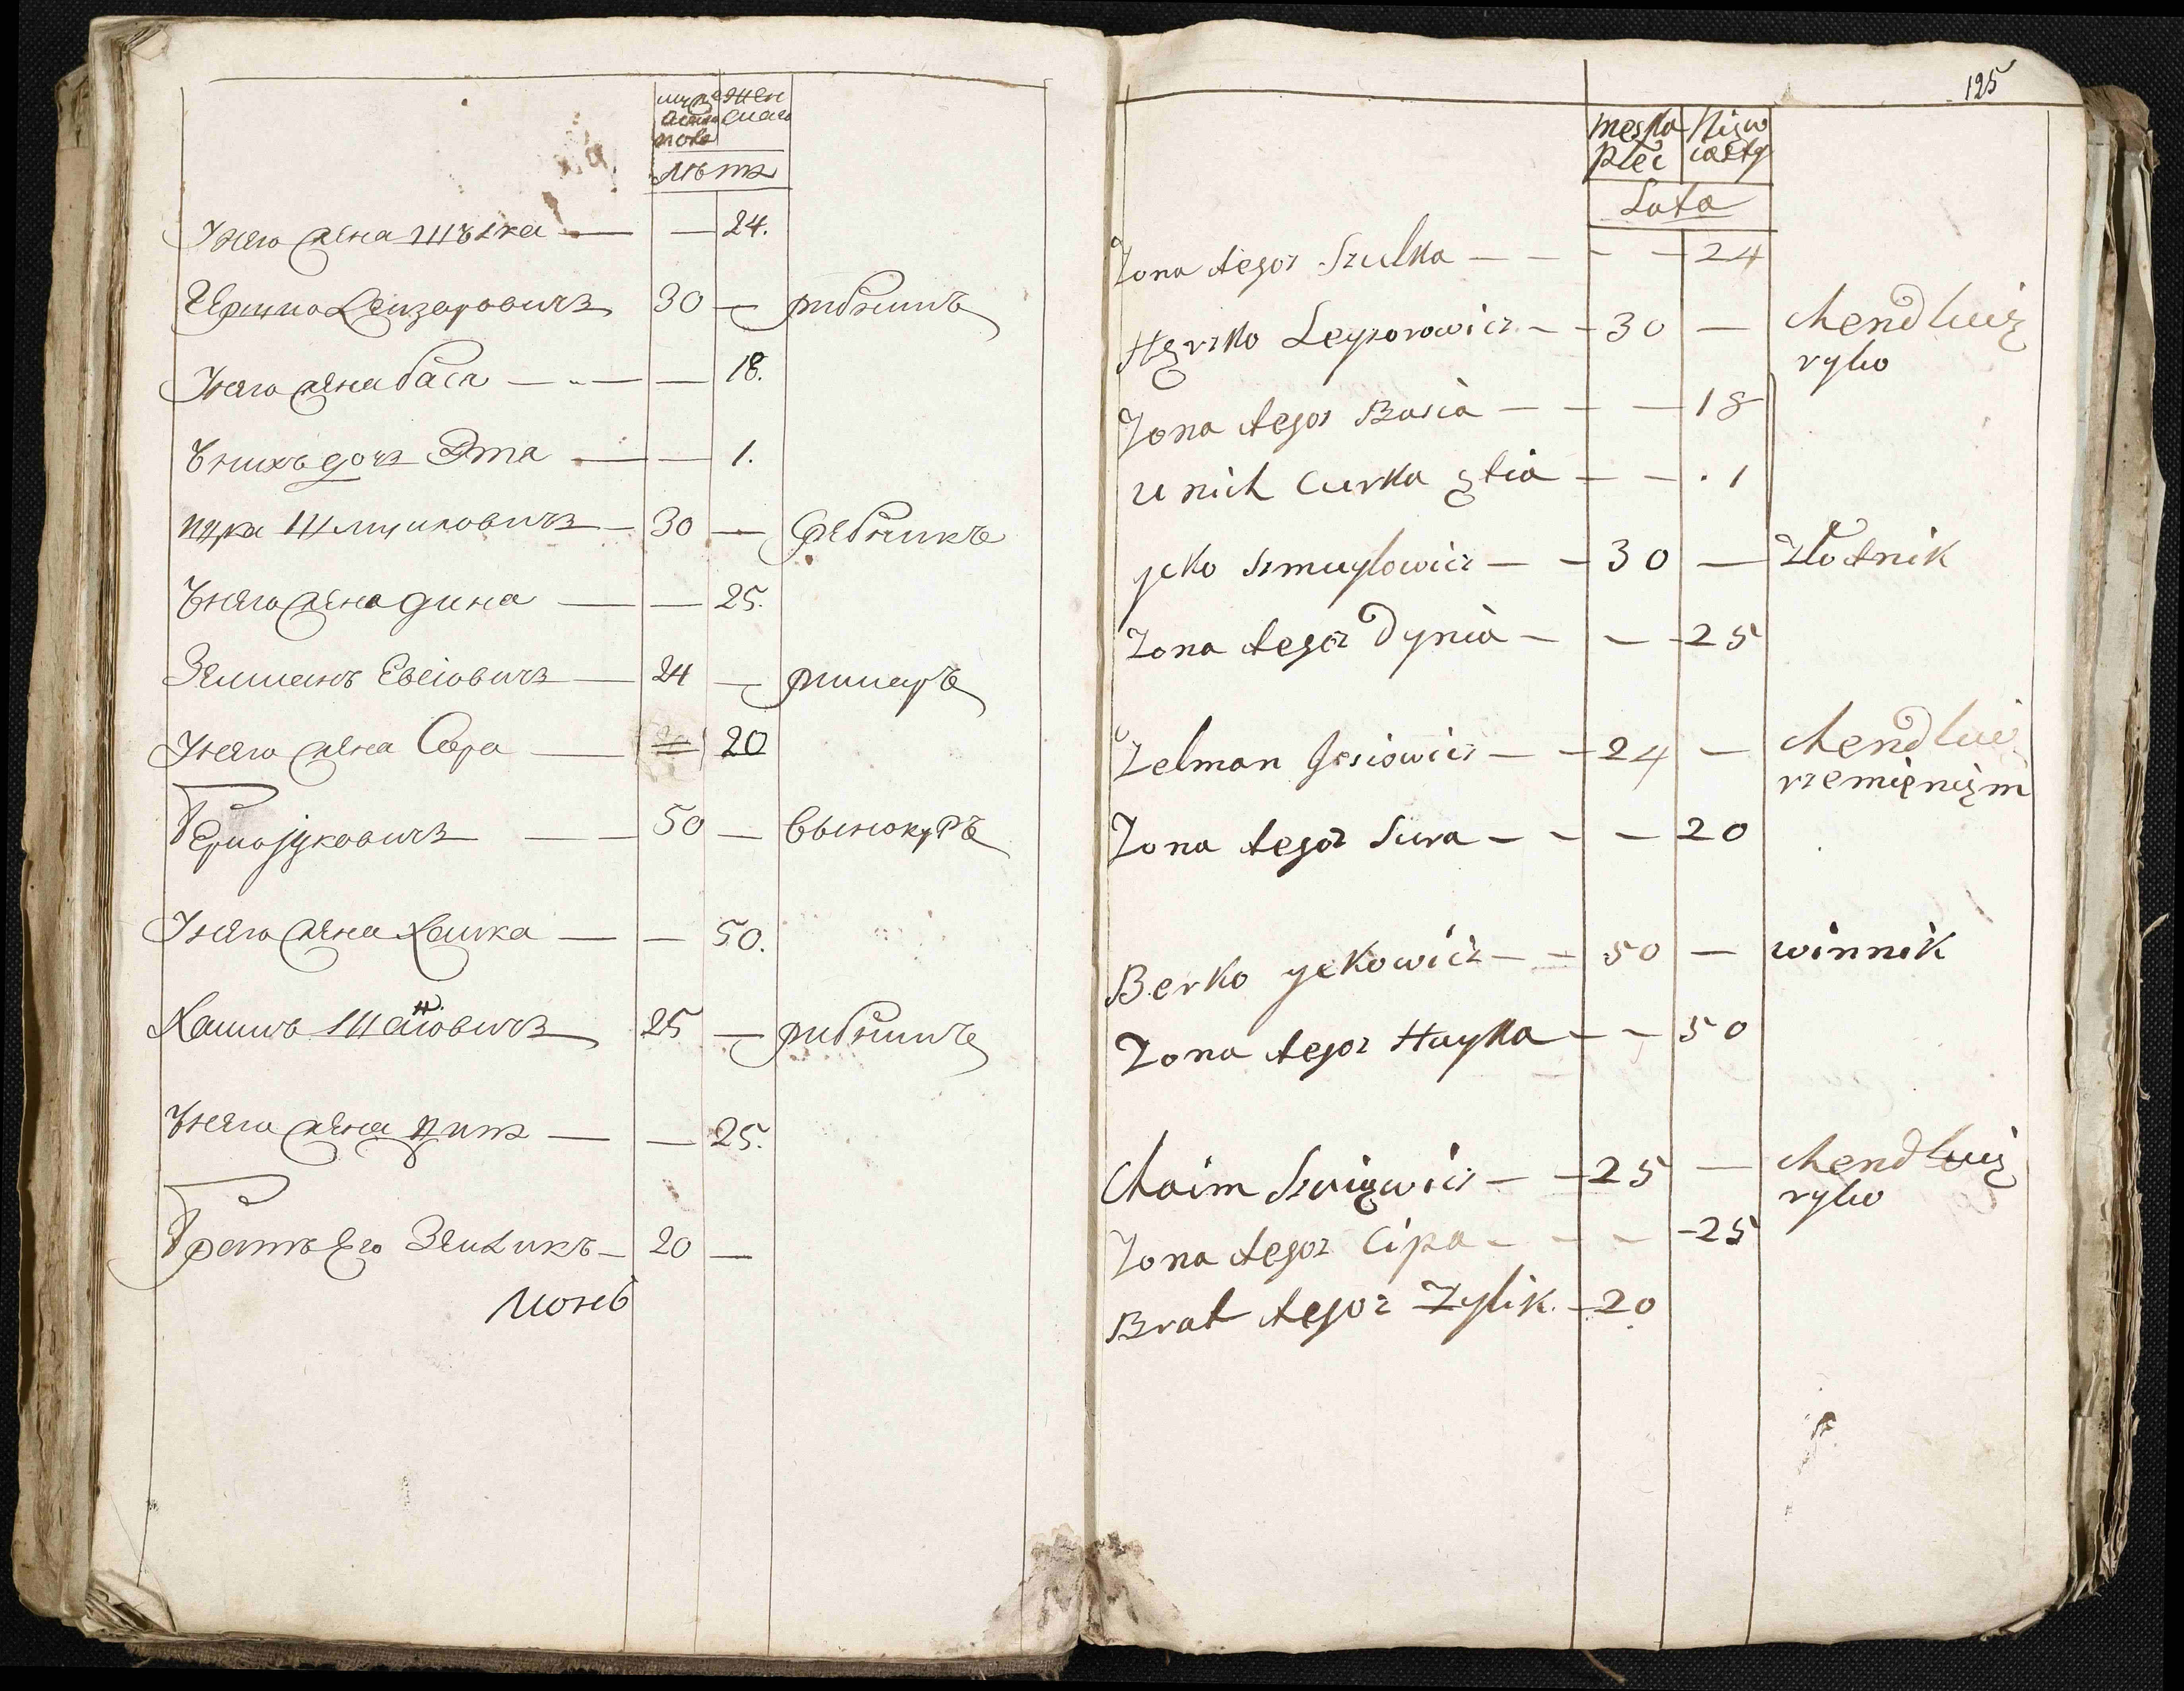 мужеска пола женскаго
лѣтъ
Унего жена Шълка — — 24.
Гершко Лейзаровичъ 30 — рибникъ
Унего жена Бася — — 18.
Унихъ дочь Эта — — 1.
ицка Шмуиловичъ — 30 — Сребникъ
Унего жена дина — — 25.
Зелманъ Евсіовичъ — 24 — римаръ
Унего жена Сора — 20
Берко јцковичъ — — 50 — Вынокуръ
Унего жена Хаика — — 50.
Хаимъ Шаіовичъ 25 — рибникъ
Унего жена Ципа — — 25.
Братъ Его Зеиликъ — 20 —
Моней
125
męska płeć Niewiasty
Lata
Zona tegoz Szulka — — — — 24
Hęrszko Leyzorowicz — — 30 — Hendluię
rybo
Zona tegoz Basia — — — 18
u nich Curka ętia — — . 1
ycko Szmuylowicz — — 30 — Złotnik
Zona tegoz Dynia — — — 25
Zelman Josiowicz — — 24 — Hendluie
rzemięnięm
Zona tegoz Sura — — — 20
Berko yckowicz — — 50 — winnik
Zona tegoz Hayka — — 50
Chaim Szaięwicz — — 25 — Hendluię
rybo
Zona tegoz Cipa — — — 25
Brat tegoz Zylik. — 20